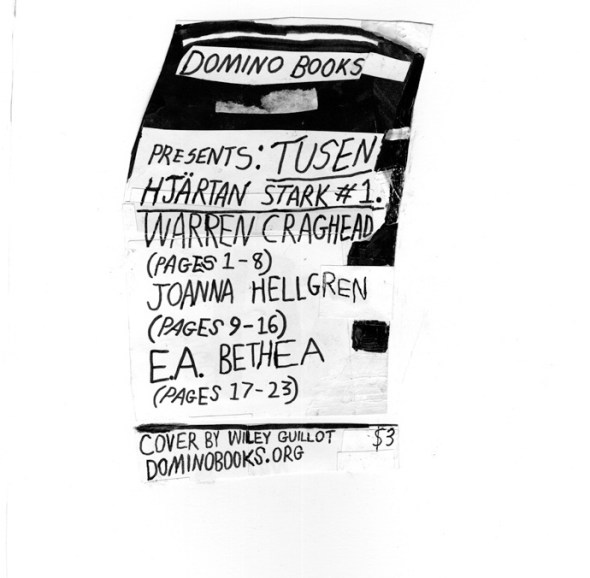 DOMINO BOOKS
PRESENTS: TUSEN
HJÄRTAN STARK #1.
WARREN CRAGHEAD
(PAGES 1-8)
JOANNA HELLGREN
(PAGES 9-16)
E.A. BETHEA
(PAGES 17-23)
COVER BY WILEY GUILLOT $3
DOMINOBOOKS.ORG